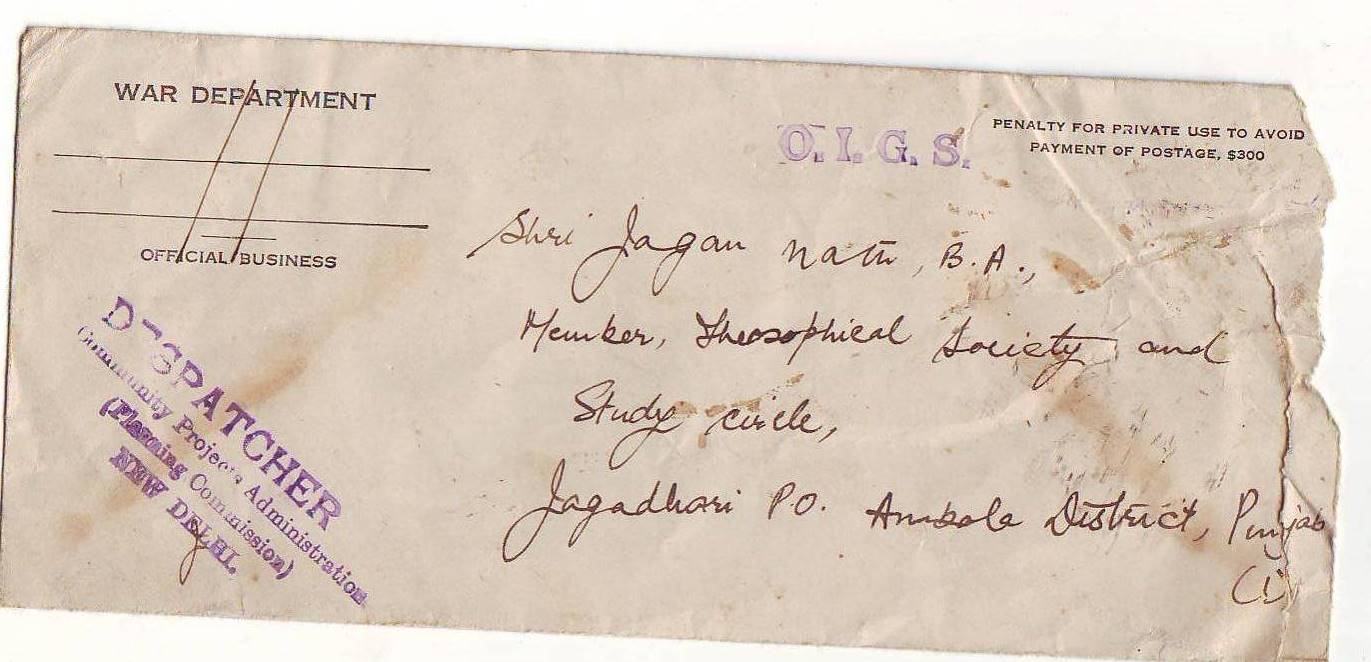 WAR DEPARTMENT
OFFICIAL BUSINESS
O. I. G. S.
PENALTY FOR PRIVATE USE TO AVOID
PAYMENT OF POSTAGE, $300
Shri Jagan Nath, B.A.,
Member, Theosophical Society and
Study circle,
Jagadhari P.O. Ambala District, Punjab
DESPATCHER
Community Projects Administration
(Planning Commission)
NEW DELHI.